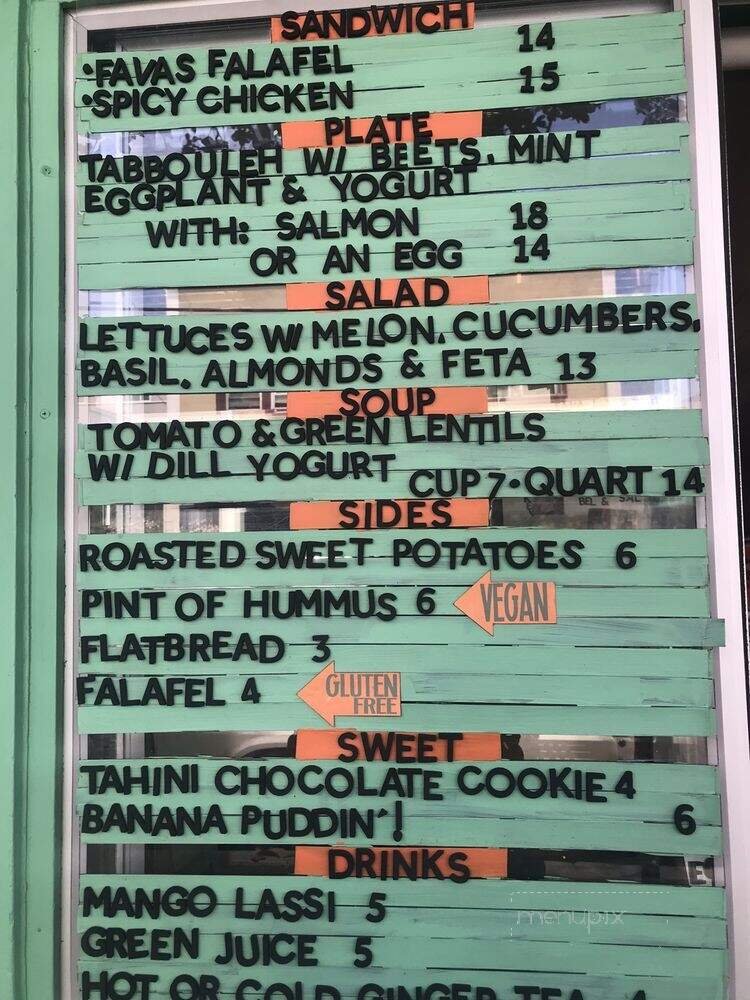 SANDWICH
•FAVAS FALAFEL 14
•SPICY CHICKEN 15
PLATE
TABBOULEH W/ BEETS, MINT
EGGPLANT & YOGURT
WITH: SALMON 18
OR AN EGG 14
SALAD
LETTUCES W/ MELON, CUCUMBERS,
BASIL, ALMONDS & FETA 13
SOUP
TOMATO & GREEN LENTILS
W/ DILL YOGURT
CUP 7 • QUART 14
SIDES
ROASTED SWEET POTATOES 6
PINT OF HUMMUS 6 VEGAN
FLATBREAD 3
FALAFEL 4 GLUTEN
FREE
SWEET
TAHINI CHOCOLATE COOKIE 4
BANANA PUDDIN'! 6
DRINKS
MANGO LASSI 5
GREEN JUICE 5
menupix
HOT OR COLD GINGER TEA 4